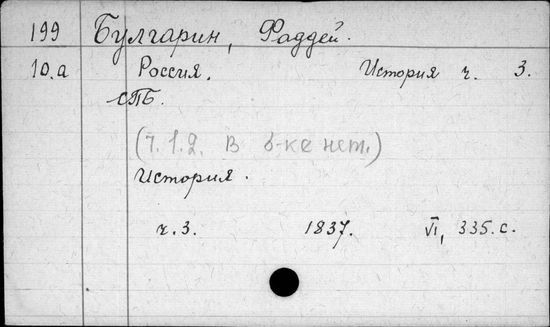 199 Булгарин, Фаддей.
10.а Россия. История ч. 3.
СПБ.
(ч. 1.2. В б-ке нет.)
История.
ч.3. 1837. VI, 335.с.